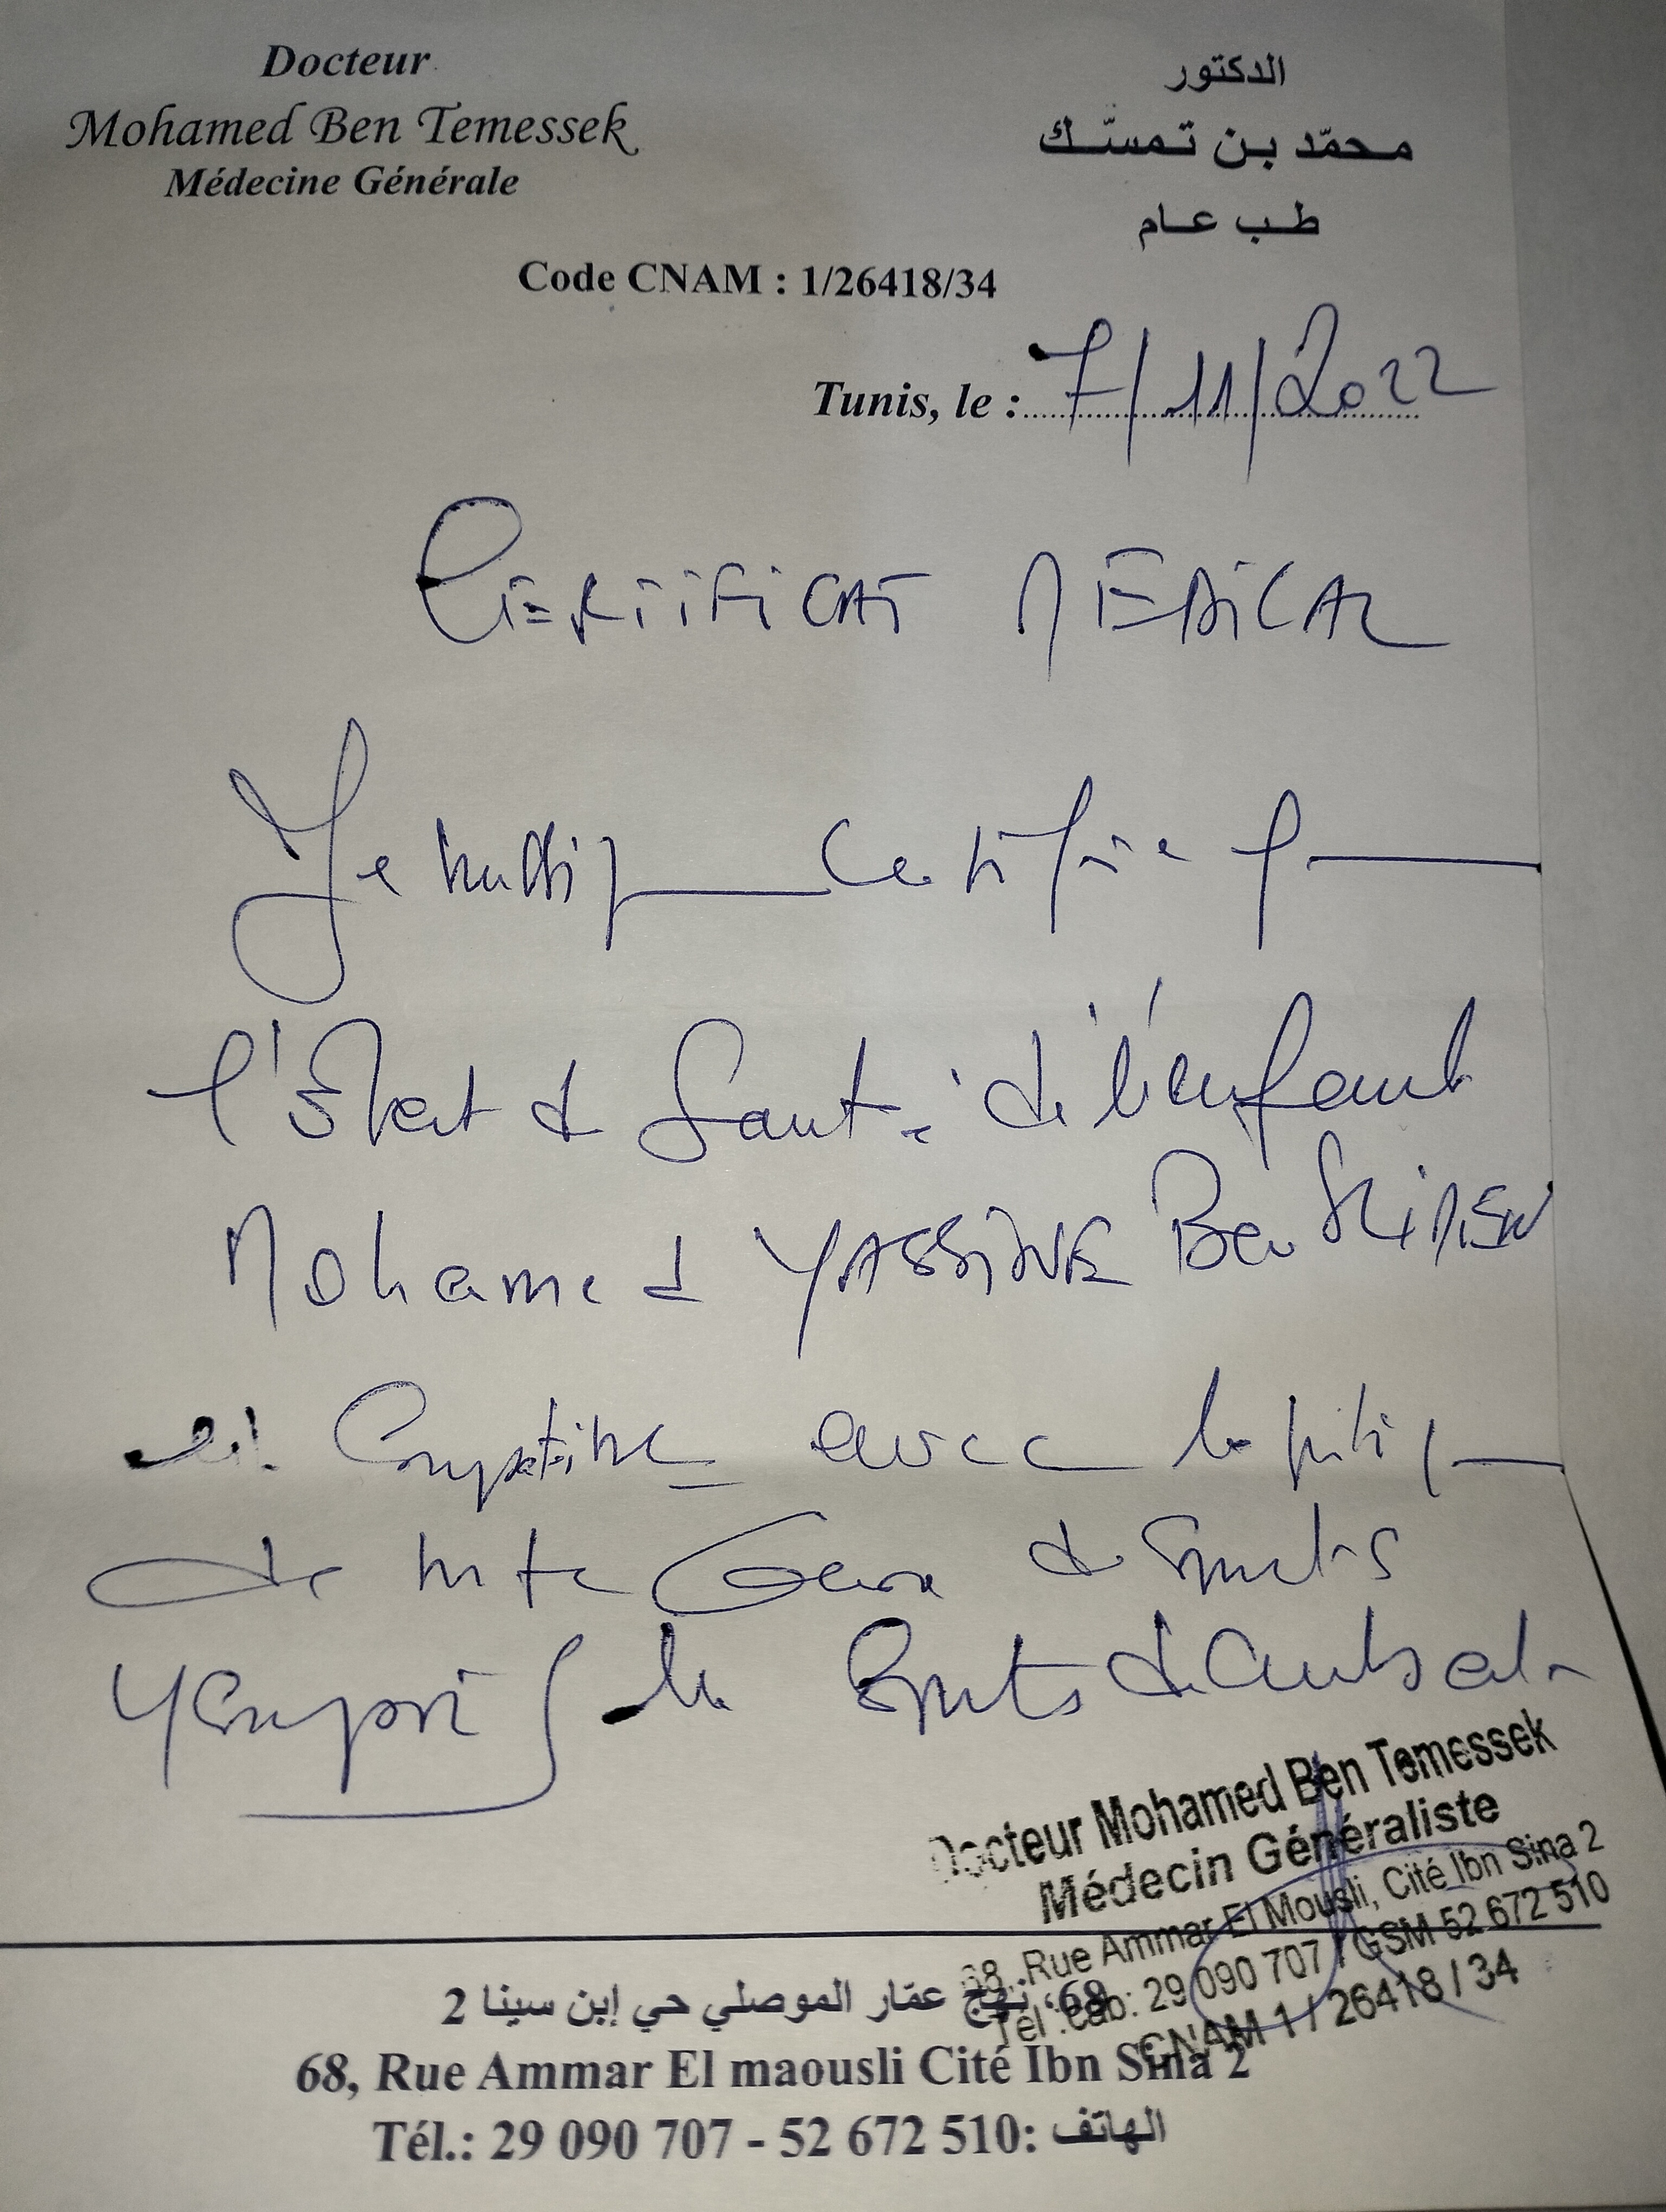 Docteur
Mohamed Ben Temessek
Médecine Générale
الدكتور
محمّد بن تمسّك
طب عام
Code CNAM : 1/26418/34
Tunis, le : 7/11/2022
CERTIFICAT MEDICAL
Je certifie
l'état de santé de l'enfant
Mohamed YASSINE Ben
est avec la
de de Sports
Y compris les Sports de Combat
Docteur Mohamed Ben Temessek
Médecin Généraliste
68, Rue Ammar El Mousli, Cité Ibn Sina 2
Tél .Cab: 29 090 707 / GSM 52 672 510
CNAM 1 / 26418 / 34
68، نهج عمّار الموصلي حي إبن سينا 2
68, Rue Ammar El maousli Cité Ibn Sina 2
Tél.: 29 090 707 - 52 672 510: الهاتف